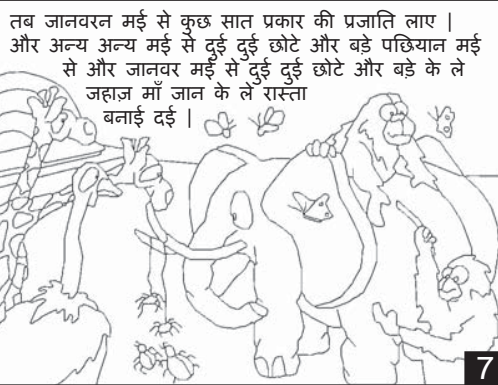 तब जानवरन मई से कुछ सात प्रकार की प्रजाति लाए |
और अन्य अन्य मई से दुई दुई छोटे और बड़े पछियान मई
से और जानवर मई से दुई दुई छोटे और बड़े के ले
जहाज़ माँ जान के ले रास्ता
बनाई दई |
7